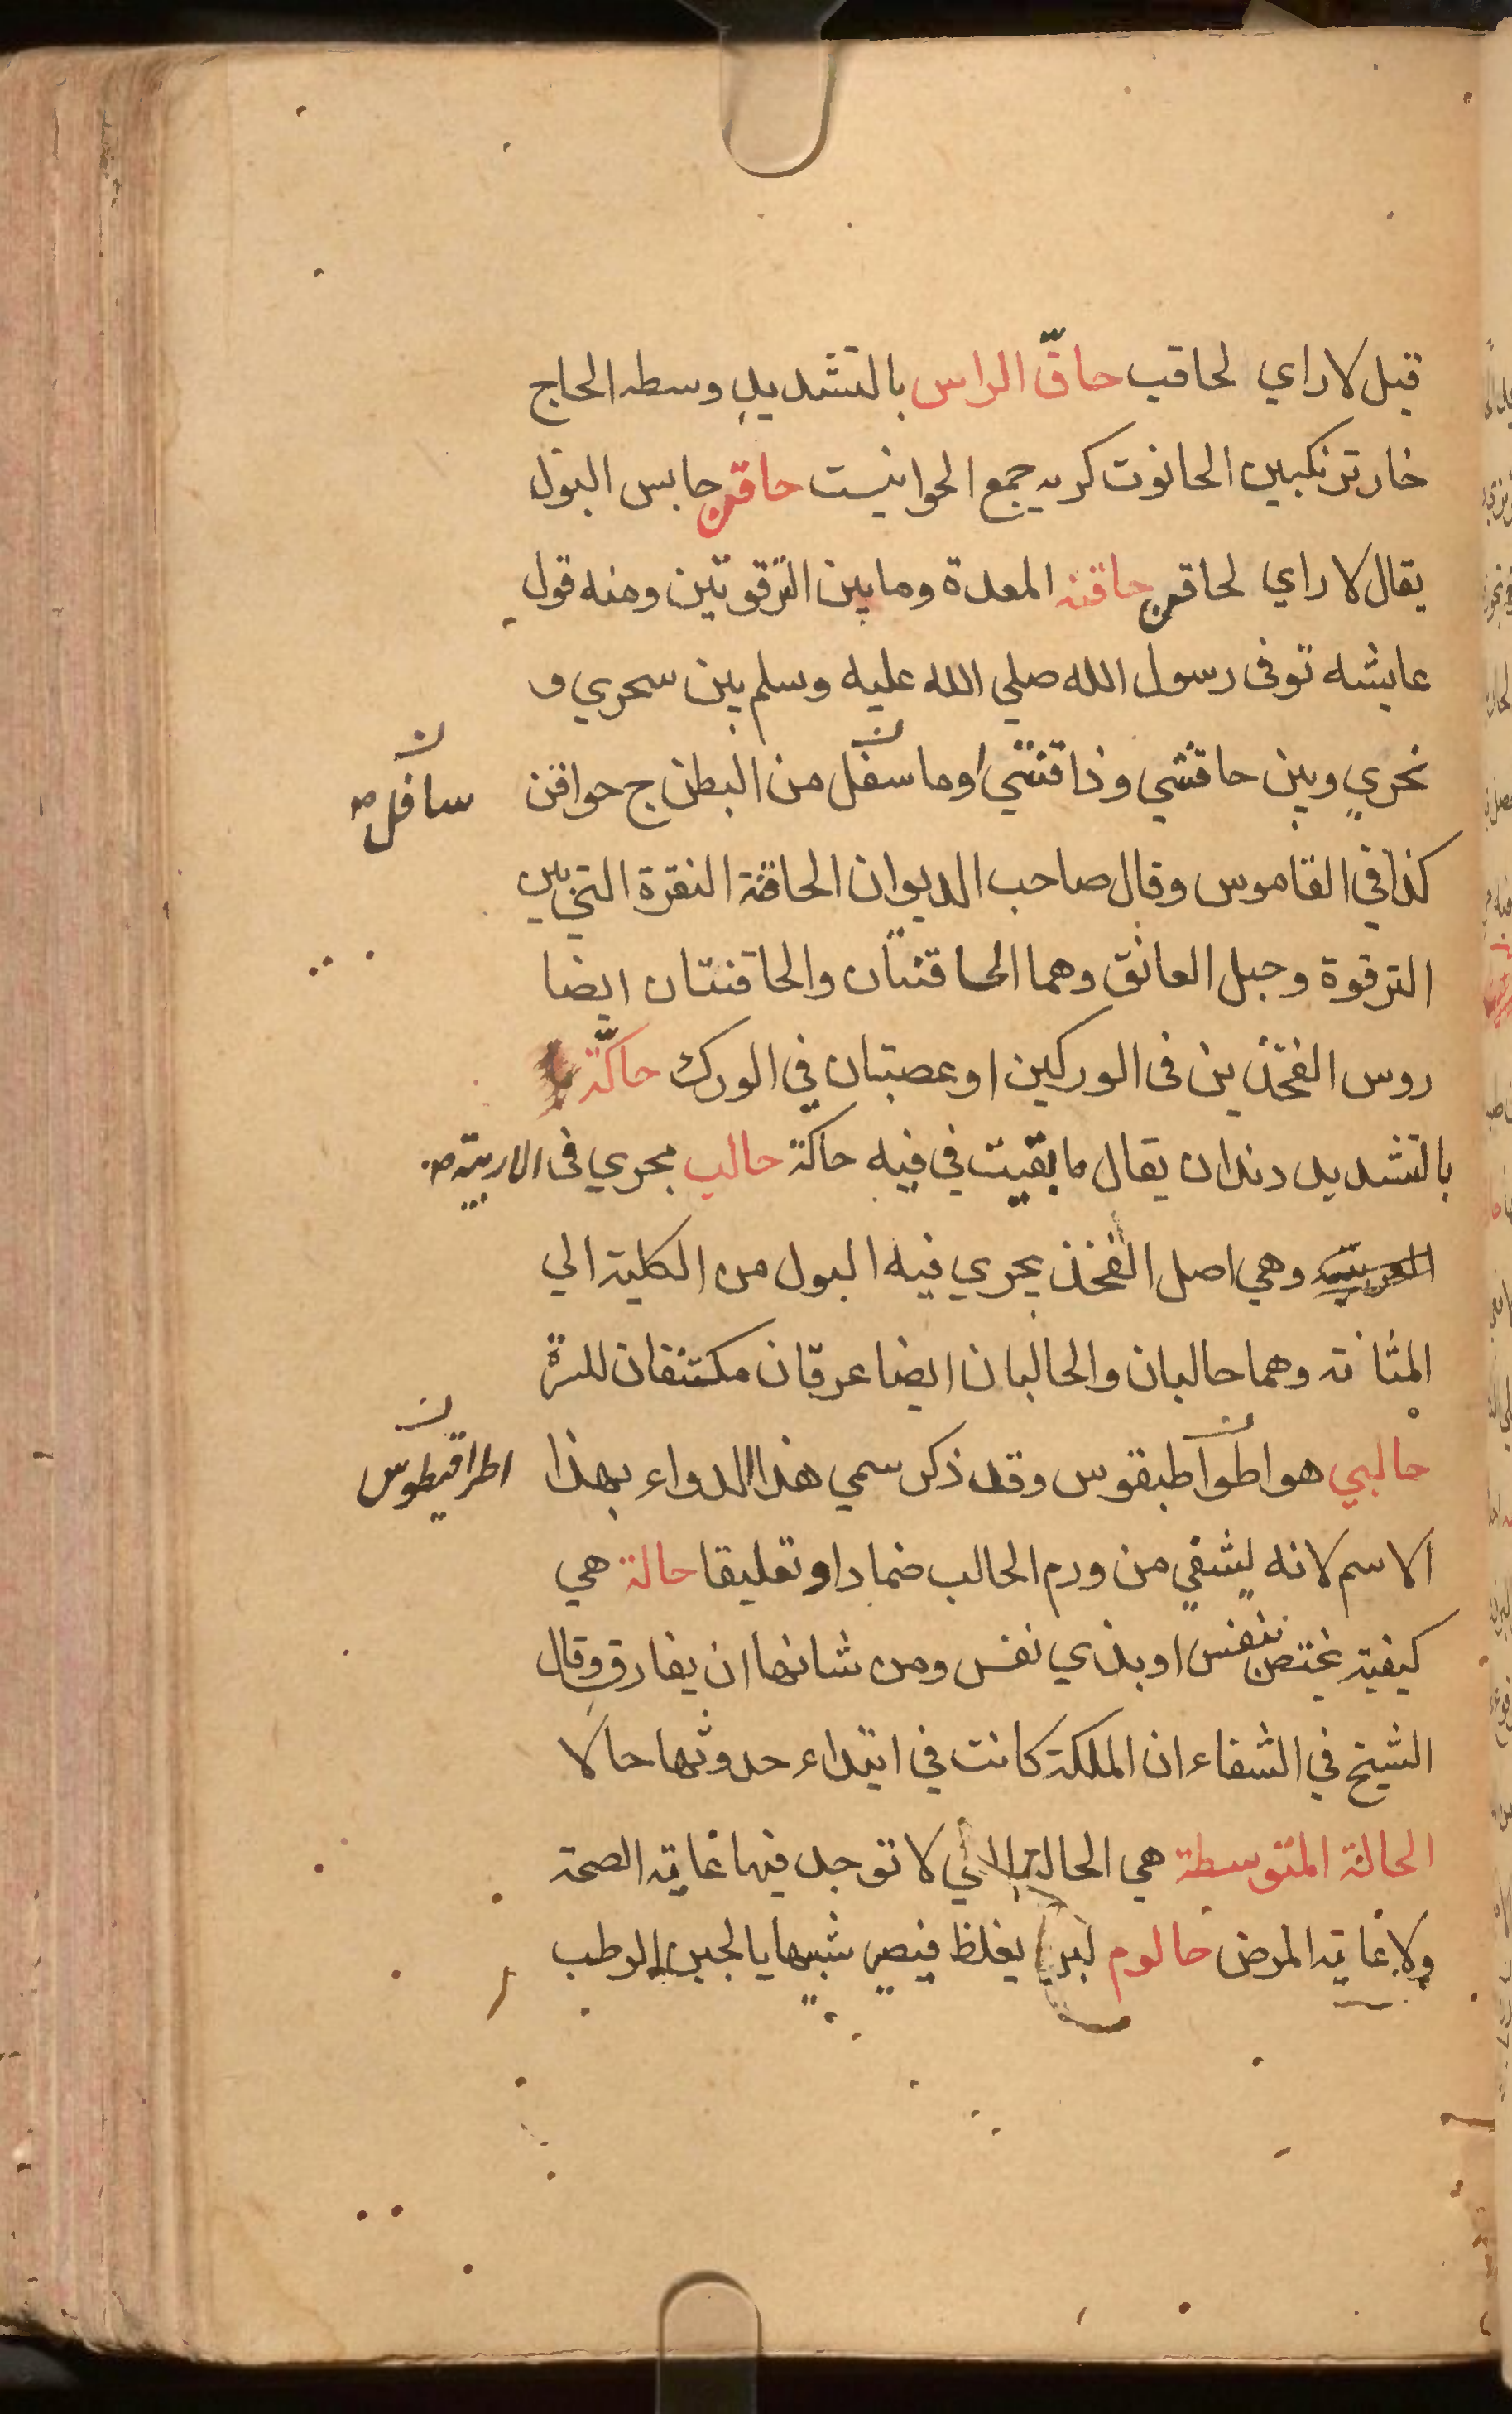 قيل لا راي لحاقب حاقّ الراس بالتشديد وسطه الحاج
خار ترنكبين الحانوت كربه جمع الحوانيت حاقن حابس البول
يقال لا راي لحاقن حاقنه المعدة وما بين الترقوتين ومنه قول
عايشه توفى رسول الله صلي الله عليه وسلم بين سحري و
نحري وبين حاقنتي وذاقنتي او ما سفل من البطن ج حواقن
سافل صح
كذا في القاموس وقال صاحب الديوان الحاقنة النقرة التي بين
الترقوة وحبل العاتق وهما الحاقنتان والحاقنتان ايضا
روس الفخذين فى الوركين او عصبتان في الورك حاكّة
بالتشديد دندان يقال ما بقيت في فيه حاكة حالب مجري فى الاربية صح
وهي اصل الفخذ يجري فيه البول من الكلية الي
المثانه وهما حالبان والحالبان ايضا عرقان مكتنفان للسرة
حالبي هو اطواطيقوس وقد ذكر سمي هذا الدواء بهذا
اطراقيطوس
الاسم لانه يشفي من ورم الحالب ضمادا وتعليقا حالة هي
كيفية تختص بنفس او بذي نفس ومن شانها ان يفارق وقال
الشيخ في الشفاء ان الملكة كانت في ابتداء حدوثها حالا
الحالة المتوسطة هي الحالة التي لا توجد فيها غاية الصحة
ولا غاية المرض حالوم لبن يغلظ فيصير شبيها بالجبن الرطب